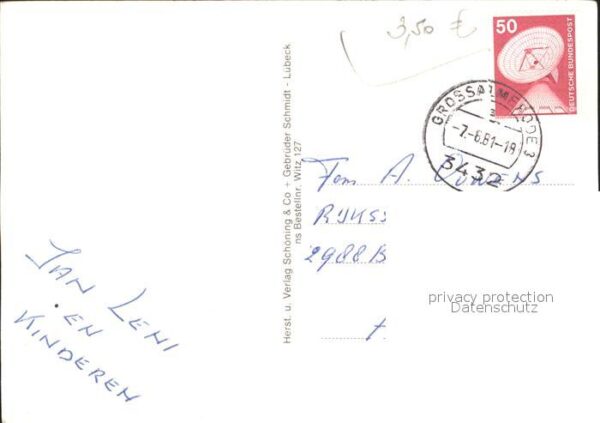 3,50 €
50
DEUTSCHE BUNDESPOST
GROSSALMERODE 3
-7.-8.81-18
3432
Fam A.
RIJKSS
2988 B
privacy protection
Datenschutz
t.
JAN LENI
EN
KINDEREN
Herst. u. Verlag Schöning & Co + Gebrüder Schmidt - Lübeck
ns Bestellnr. Witz 127